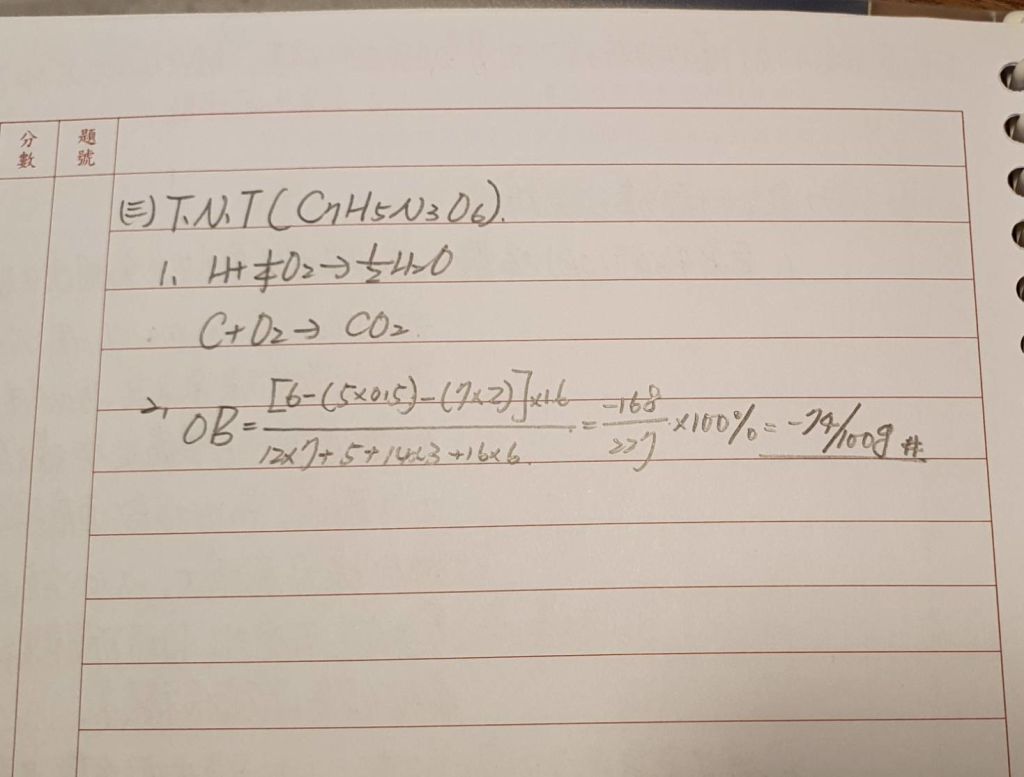 分數 題號
(三) T.N.T (C7H5N3O6).
1. H+¼O2→½H2O
C+O2→ CO2.
2. OB = [6-(5×0.5)-(7×2)]×16 / 12×7+5+14×3+16×6 = -168/227 ×100% = -74/100g #